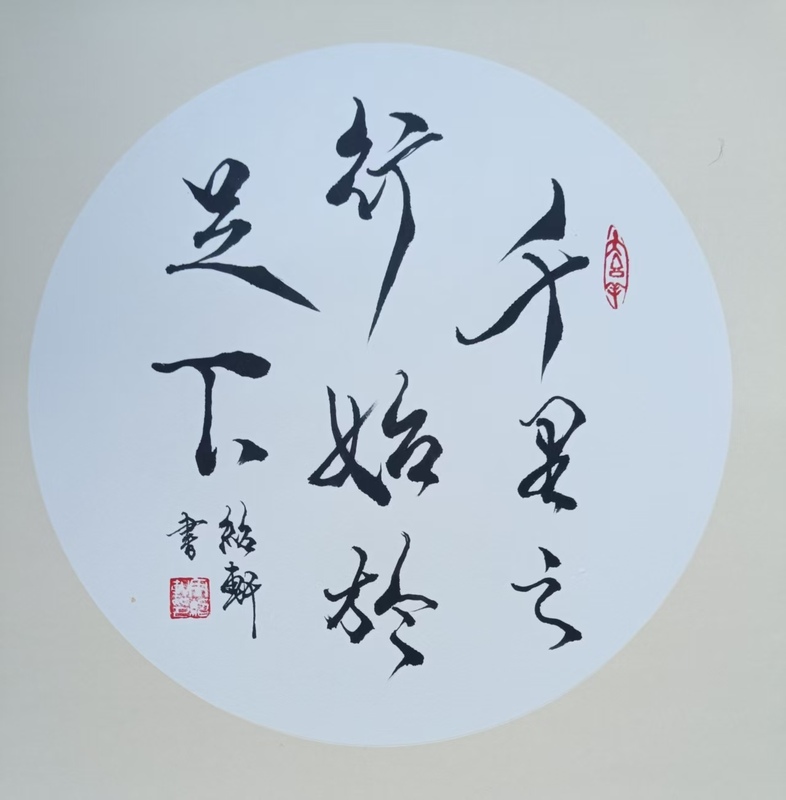 千里之
行始於
足下
紹軒
書